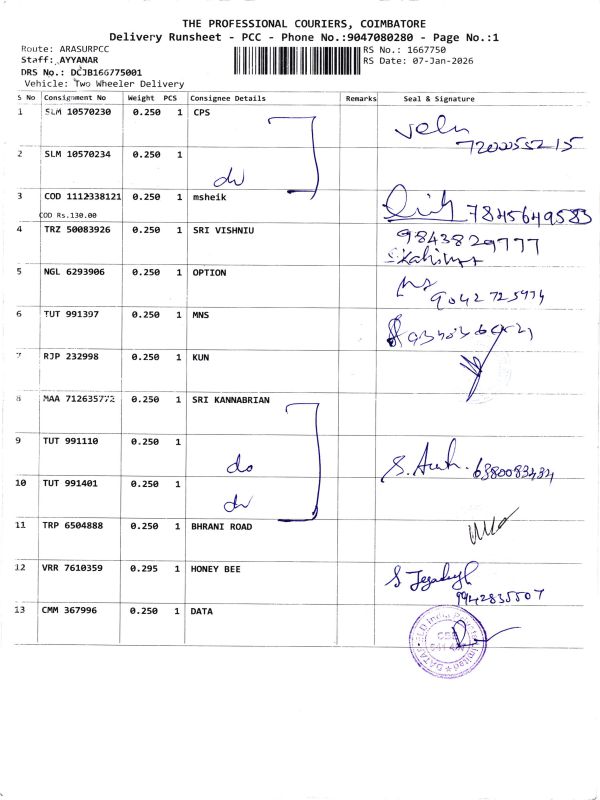 THE PROFESSIONAL COURIERS, COIMBATORE
Delivery Runsheet - PCC - Phone No.:9047080280 - Page No.:1
Route: ARASURPCC
RS No.: 1667750
Staff: AYYANAR
RS Date: 07-Jan-2026
DRS No.: DCJB166775001
Vehicle: Two Wheeler Delivery
S No Consignment No Weight PCS Consignee Details Remarks Seal & Signature
1 SLM 10570230 0.250 1 CPS
velu
7200055215
2 SLM 10570234 0.250 1
do
3 COD 1112338121 0.250 1 msheik
7845649583
COD Rs.130.00
4 TRZ 50083926 0.250 1 SRI VISHNIU
9843829777
5 NGL 6293906 0.250 1 OPTION
6 TUT 991397 0.250 1 MNS
7 RJP 232998 0.250 1 KUN
8 MAA 712635772 0.250 1 SRI KANNABRIAN
9 TUT 991110 0.250 1
do
6380083434
10 TUT 991401 0.250 1
do
11 TRP 6504888 0.250 1 BHRANI ROAD
12 VRR 7610359 0.295 1 HONEY BEE
9942835507
13 CMM 367996 0.250 1 DATA